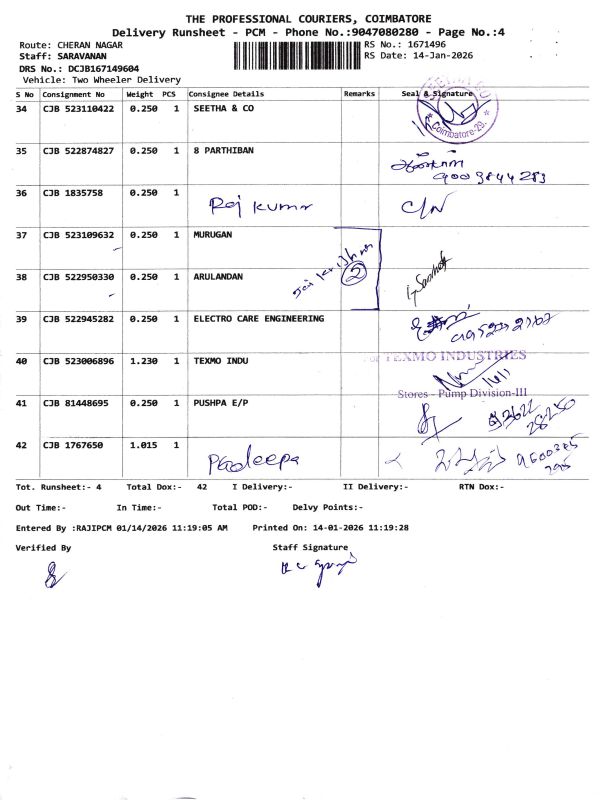 THE PROFESSIONAL COURIERS, COIMBATORE
Delivery Runsheet - PCM - Phone No.:9047080280 - Page No.:4
Route: CHERAN NAGAR RS No.: 1671496
Staff: SARAVANAN RS Date: 14-Jan-2026
DRS No.: DCJB167149604
Vehicle: Two Wheeler Delivery
S No Consignment No Weight PCS Consignee Details Remarks Seal & Signature
34 CJB 523110422 0.250 1 SEETHA & CO
Coimbatore-29.
35 CJB 522874827 0.250 1 8 PARTHIBAN
36 CJB 1835758 0.250 1 Raj kumar C/N
37 CJB 523109632 0.250 1 MURUGAN
2
38 CJB 522950330 0.250 1 ARULANDAN
39 CJB 522945282 0.250 1 ELECTRO CARE ENGINEERING
40 CJB 523006896 1.230 1 TEXMO INDU
For TEXMO INDUSTRIES
Stores - Pump Division-III
41 CJB 81448695 0.250 1 PUSHPA E/P
42 CJB 1767650 1.015 1 Pradeepa
Tot. Runsheet:- 4 Total Dox:- 42 I Delivery:- II Delivery:- RTN Dox:-
Out Time:- In Time:- Total POD:- Delvy Points:-
Entered By :RAJIPCM 01/14/2026 11:19:05 AM Printed On: 14-01-2026 11:19:28
Verified By Staff Signature